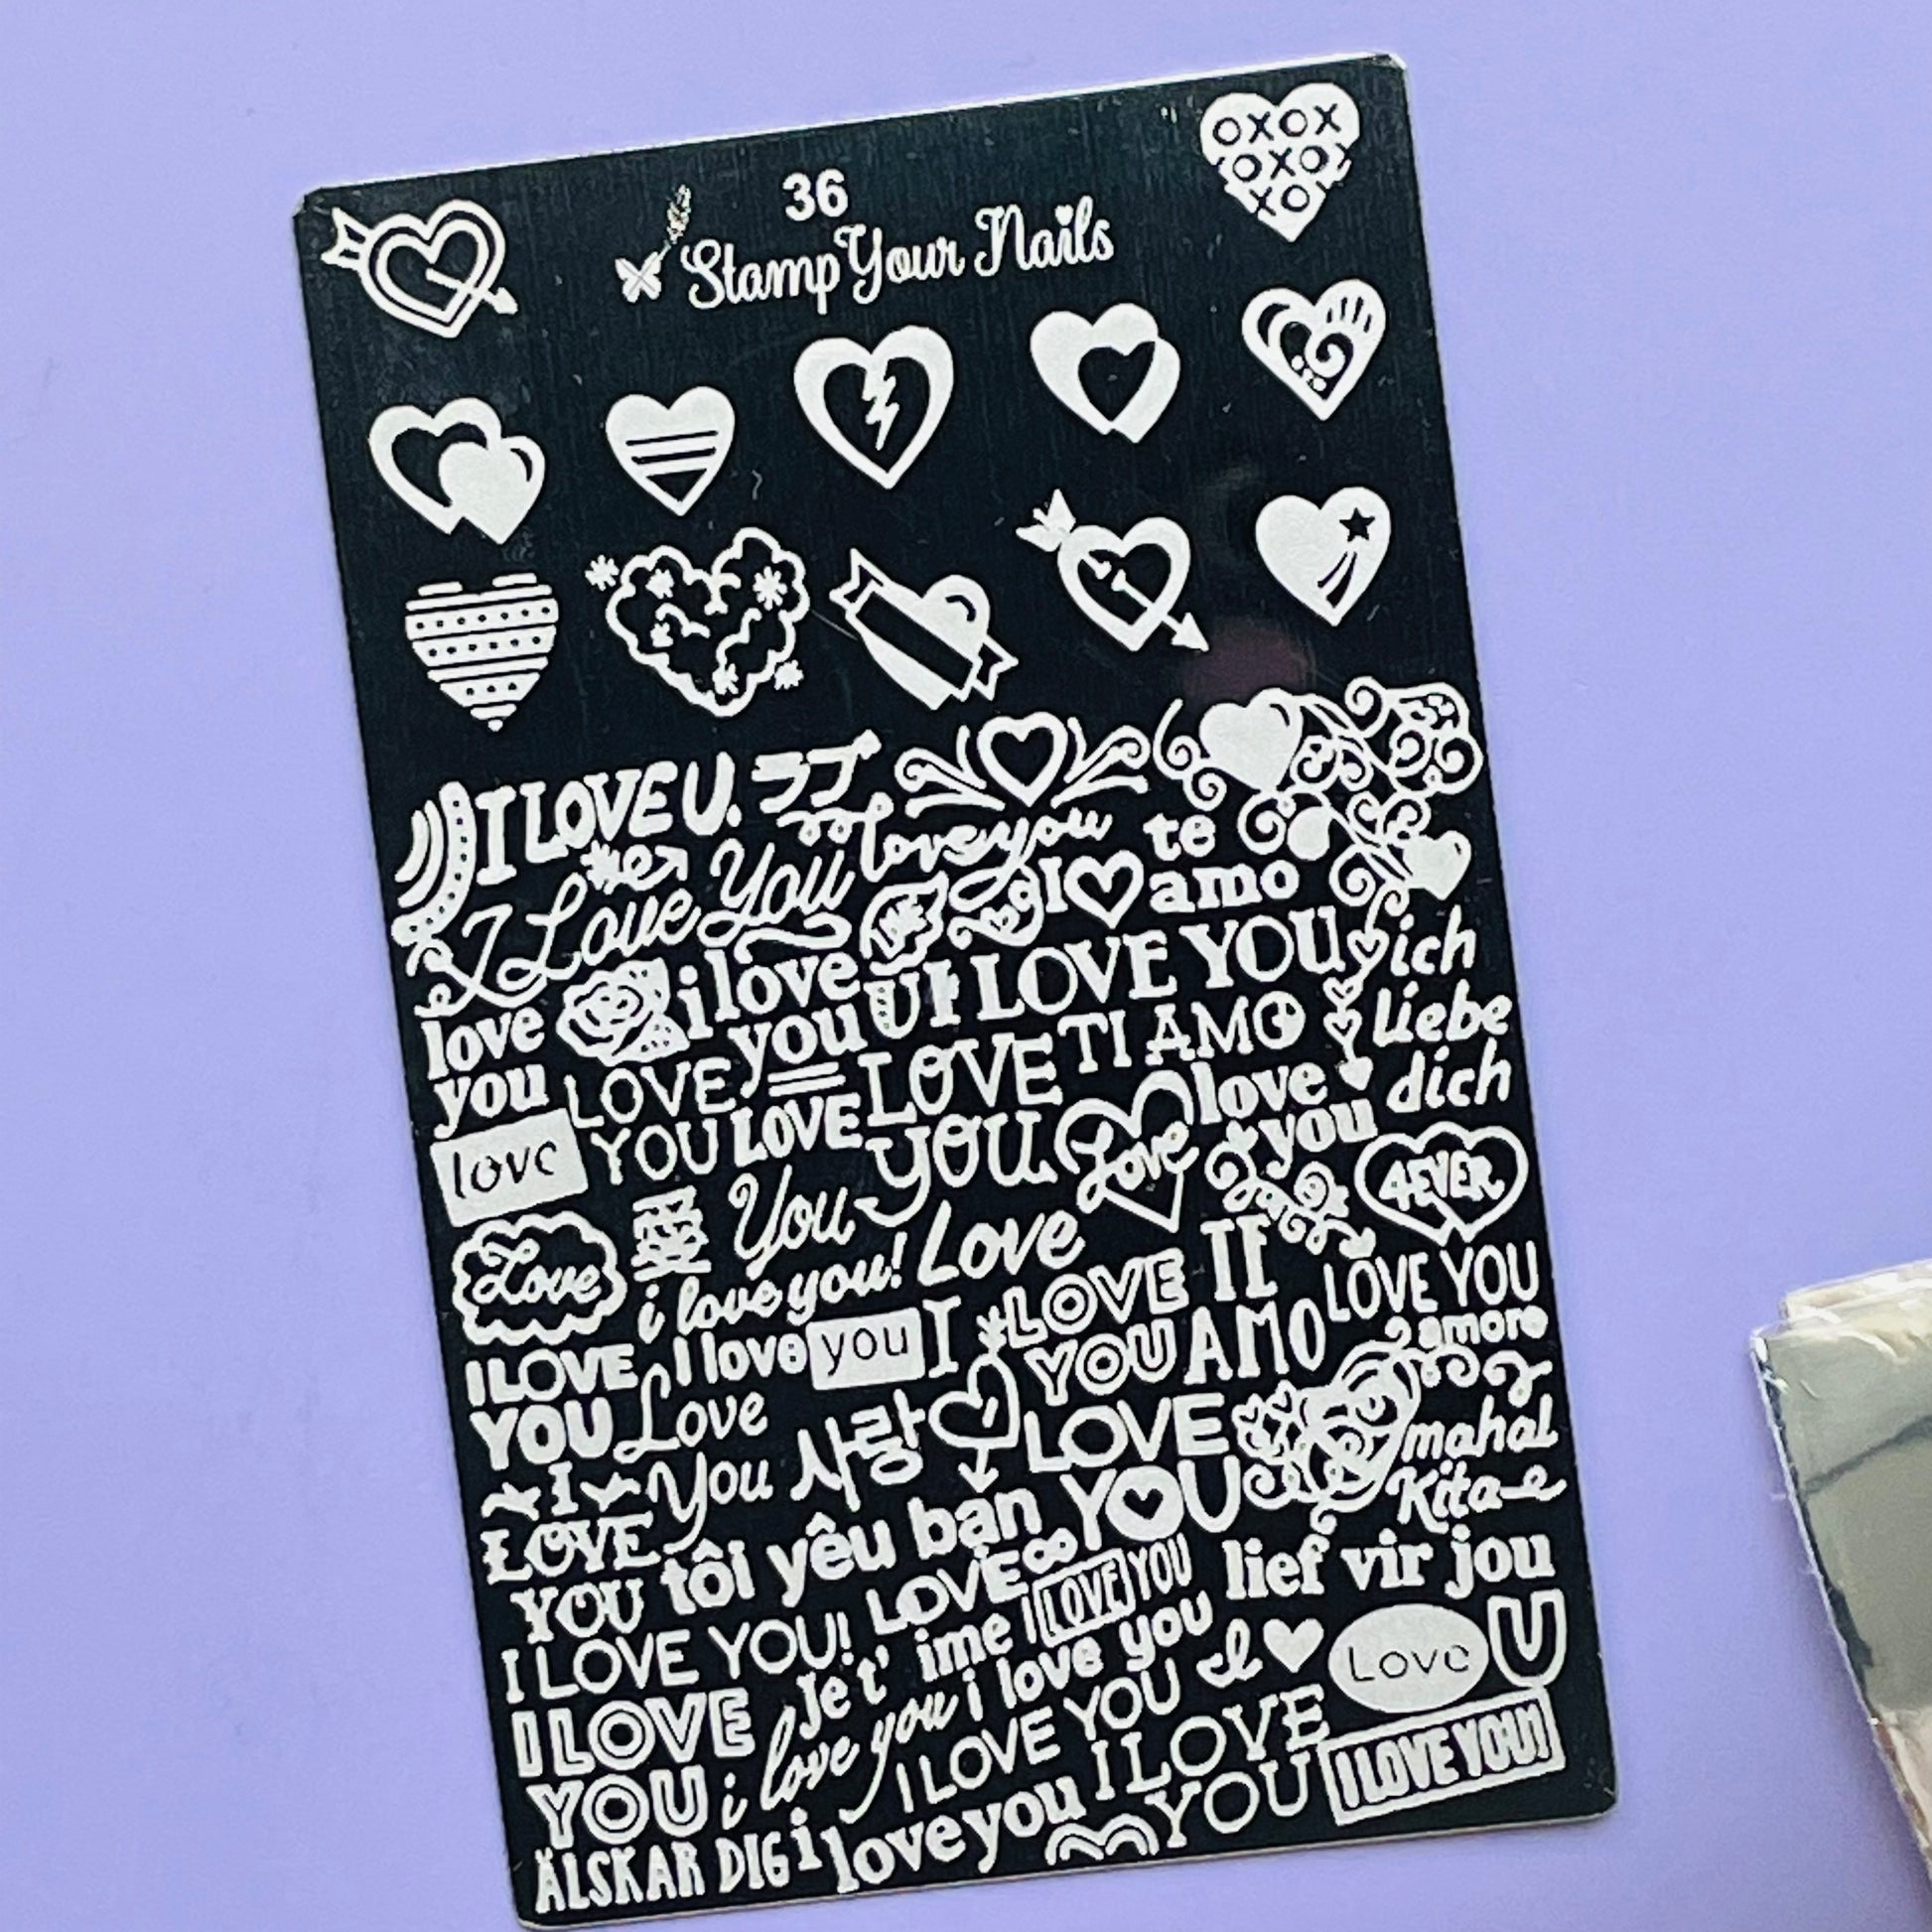 OXOX
OXO
XO
36
Stamp Your Nails
I LOVE U.
ラブ
I Love You
love you
te
amo
I
love
you
i love
you
U
I LOVE YOU
ich
liebe
dich
LOVE
YOU
LOVE
LOVE
YOU
TI AMO
love
you
love
Love
4EVER
Love
愛
You
i love you!
Love
I
LOVE
YOU
TE
AMO
LOVE YOU
amore
I LOVE
YOU
I love you
Love
You
사랑
LOVE
YOU
mahal
Kita
I
LOVE
YOU
tôi yêu bạn
lief vir jou
I LOVE YOU!
LOVE
I LOVE YOU
Je t' ime
I LOVE
YOU
i love you
i love you
I LOVE YOU
I
Love
U
I LOVE
YOU
I LOVE YOU!
ÄLSKAR DIG
i love you